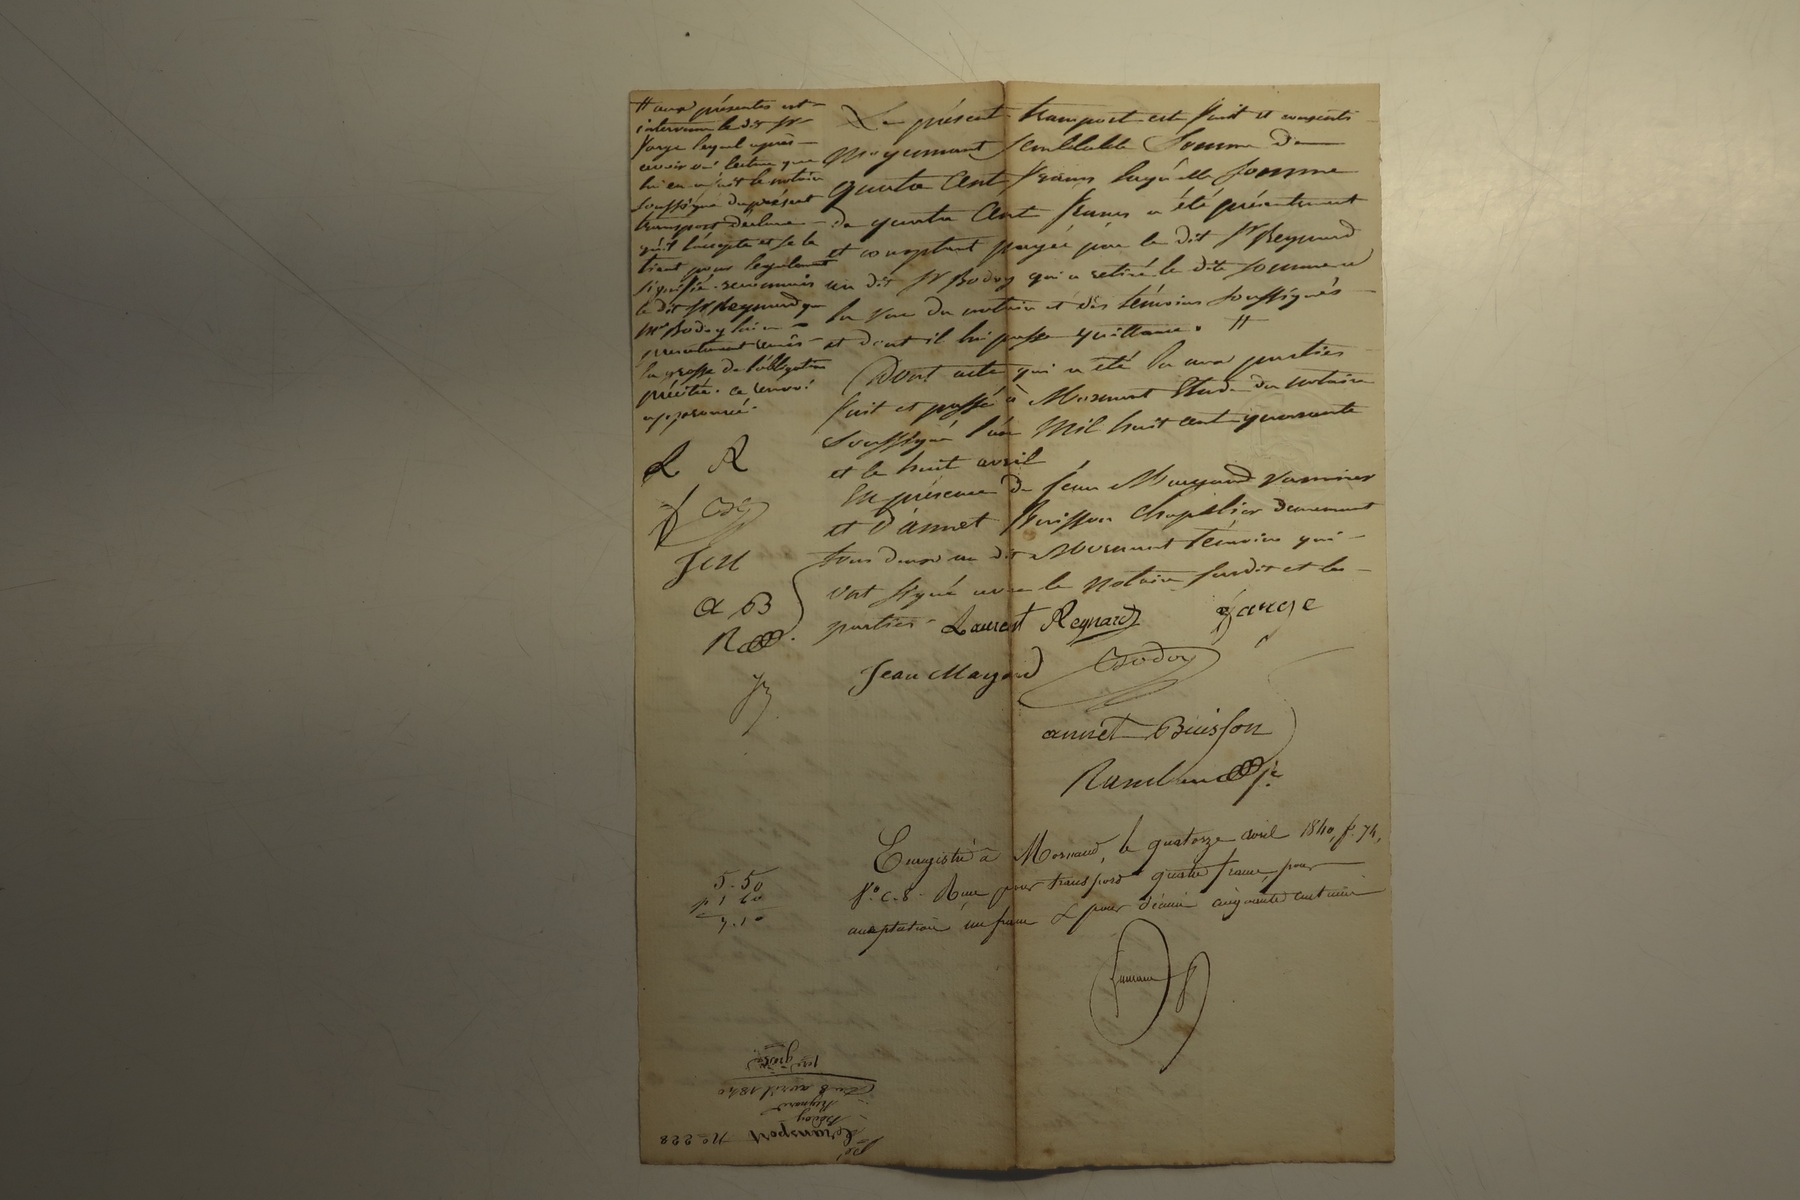 # aux présentes est
intervenu le dit Sr
Farge lequel après
avoir oui lecture que
lui en a fait le notaire
soussigné du présent
transport déclare
qu'il l'accepte et se le
tient pour légalement
signifié. reconnais
le dit Sr Reynard que
Mr Bodoy lui a
présentement remis
la grosse de l'obligation
précitée. ce renvoi
approuvé.
L R
Bdy
J M
a B
R
Le présent transport est fait et consenti
Moyennant semblable Somme de
quatre Cent francs laquelle somme
de quatre Cent francs a été présentement
et comptant payée par le dit Sr Reynard
au dit Sr Bodoy qui a retiré la dite somme a
la vue du notaire et des témoins soussignés
et dont il lui passe quittance. #
Dont acte qui a été lu aux parties
fait et passé à Mornant Etude du notaire
soussigné l'an Mil huit cent quarante
et le huit avril
En présence de Jean Mayard
et d'annet Buisson chapelier demeurant
tous deux au dit Mornant témoins qui
ont signé avec le notaire susdit et les
parties.
Laurent Reynard farge
Jean Mayard Bodoy
annet Buisson
Enregistré à Mornand, le quatorze avril 1840, f. 74,
Vo. c. 8. Reçu pour transport quatre francs, pour
acceptation un franc & pour décime cinquante centimes
5.50
1 60
7.10
No 228 Transport
Bodoy
Reynard
Du 8 avril 1840
1ere grosse